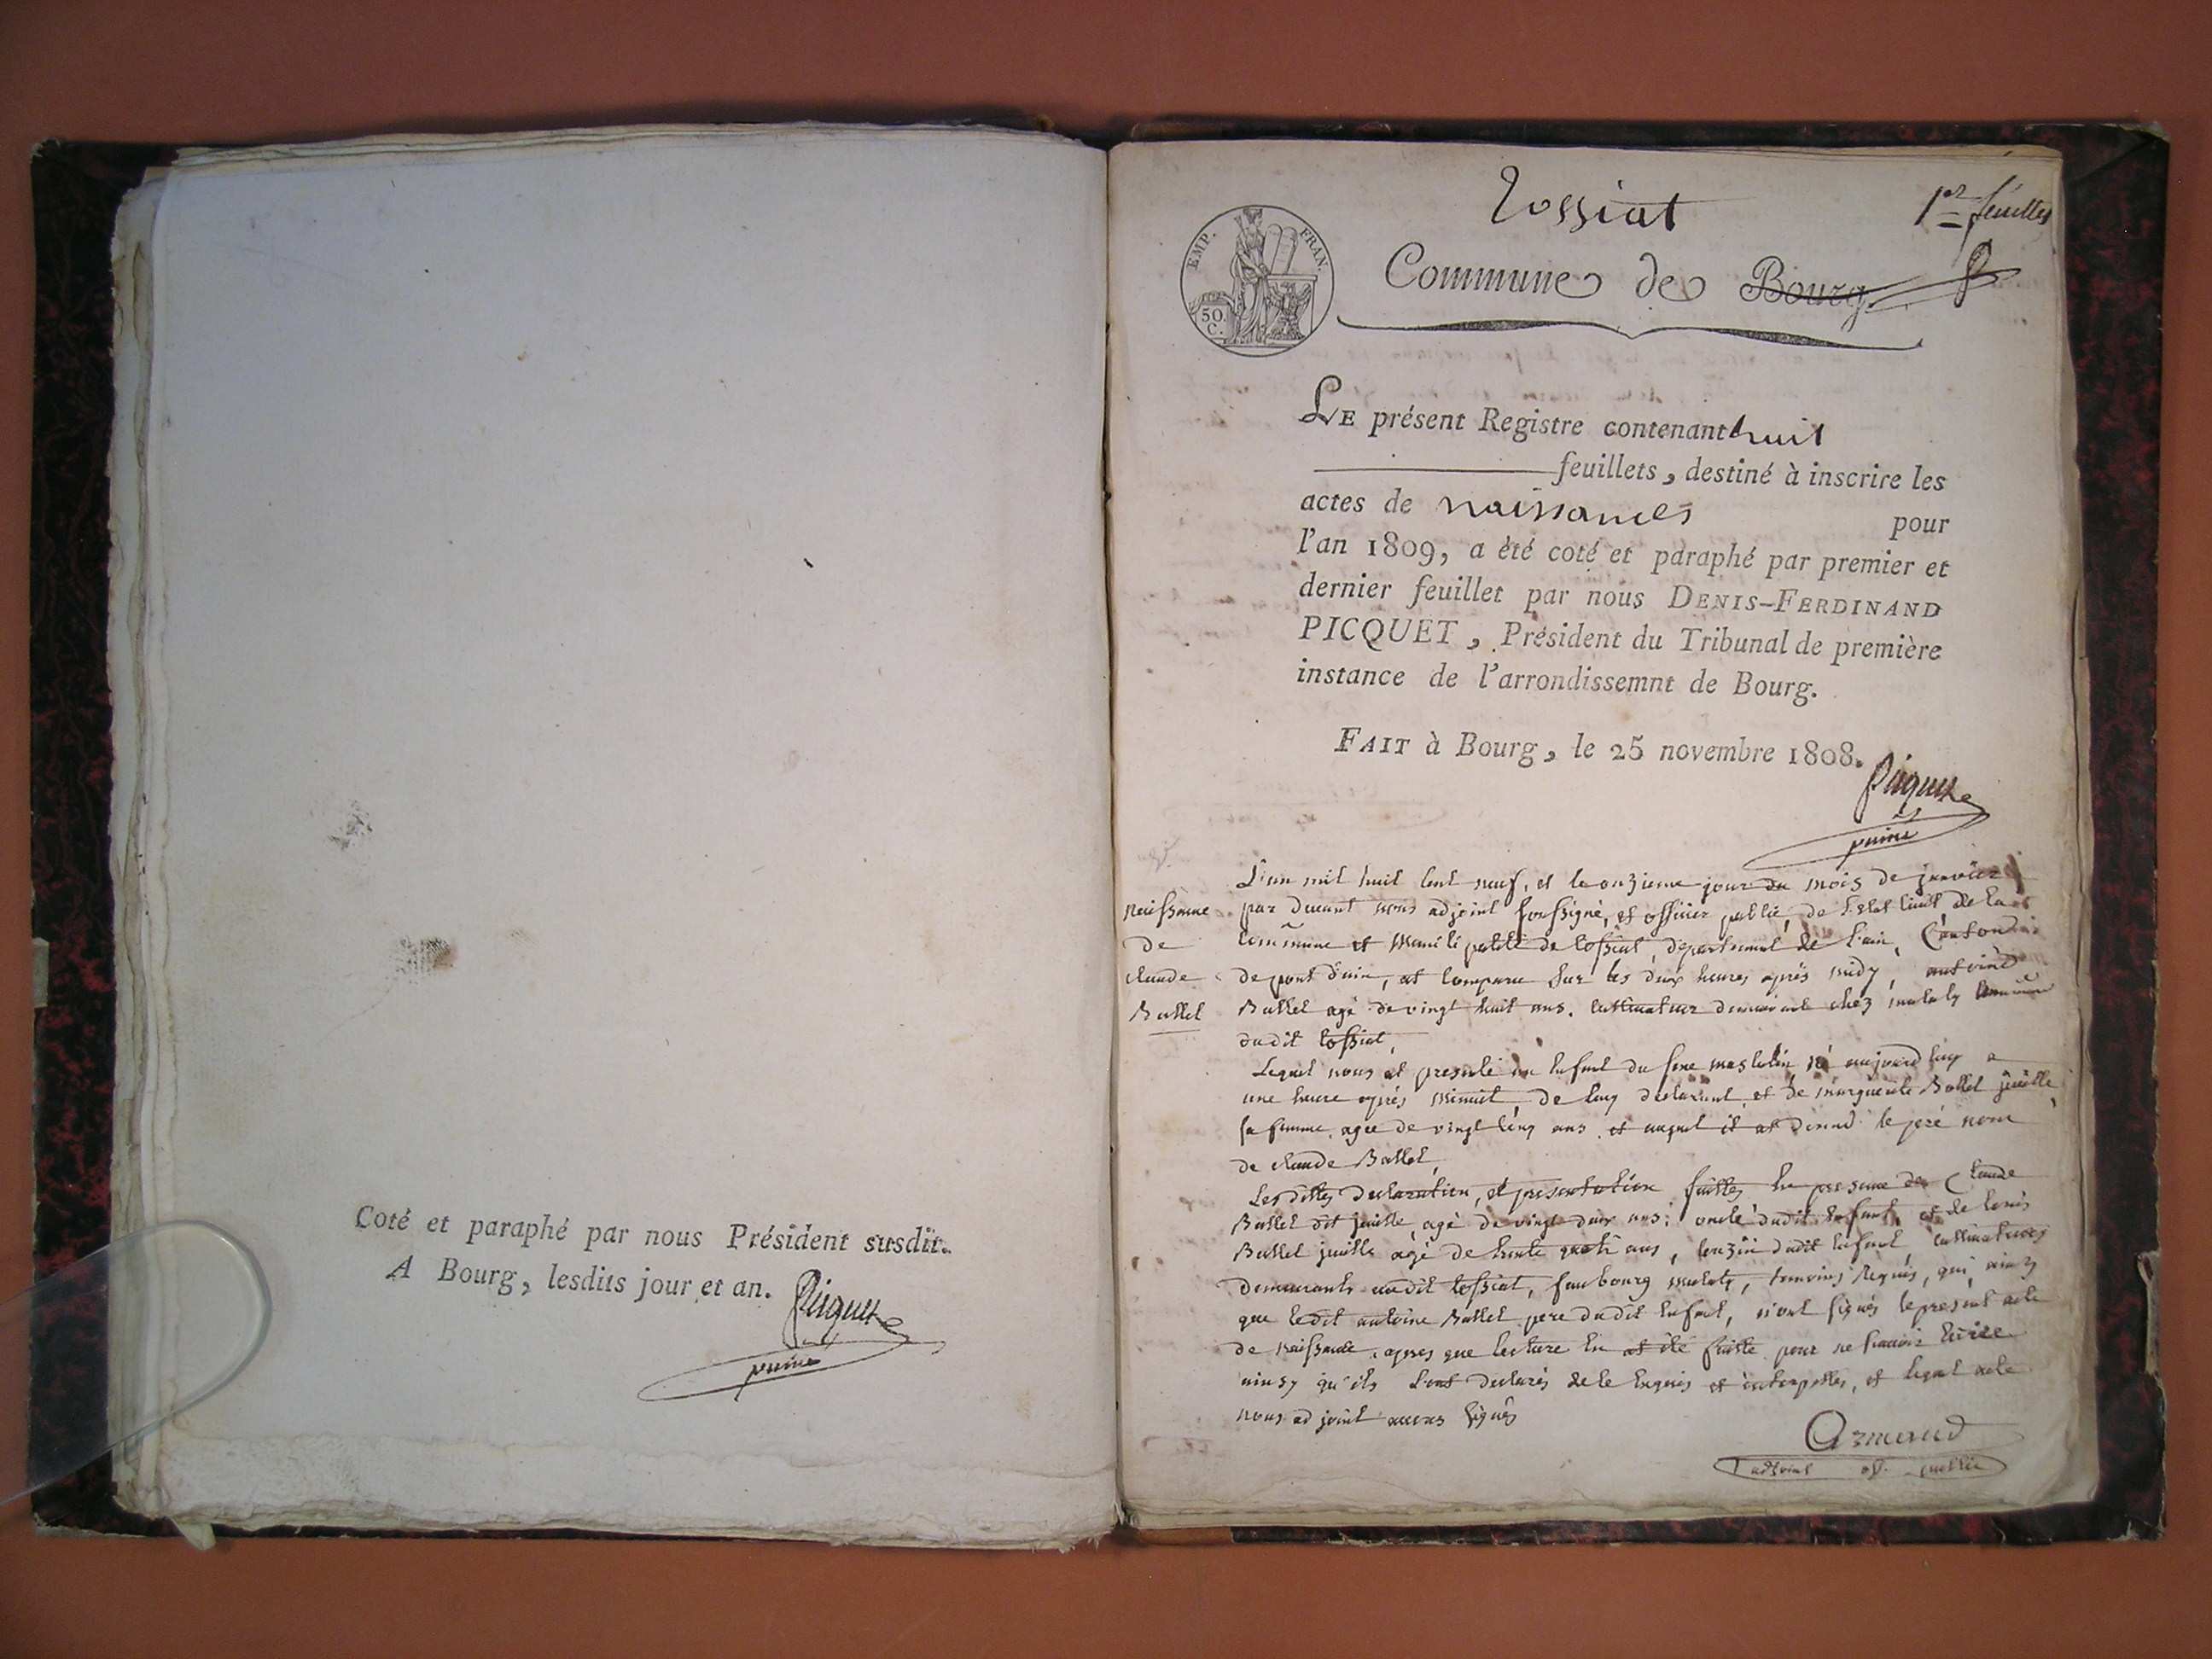 Coté et paraphé par nous Président susdit.
A Bourg, lesdits jour et an.
Picquet
Tossiat
1er feuillet
EMP. FRAN.
50 C.
Commune de Bourg
LE présent Registre contenant huit
feuillets, destiné à inscrire les
actes de naissances pour
l'an 1809, a été coté et paraphé par premier et
dernier feuillet par nous DENIS-FERDINAND
PICQUET, Président du Tribunal de première
instance de l'arrondissemnt de Bourg.
FAIT à Bourg, le 25 novembre 1808.
Picquet
naissance
de
claude
Ballet
L'an mil huit cent neuf, et le onzieme jour du mois de janvier
par devant nous adjoint soussigné, et officier public de l'etat civil de la
commune et municipalité de tossiat, departement de l'ain, Canton
de pont d'ain, at comparu sur les deux heures aprés midy, antoine
Ballet agé de vingt huit ans. cultivateur demeurant chez
dudit tossiat,
Lequel nous at presenté un enfant du sexe masculin né aujourdhuy a
une heure aprés minuit, de luy declarant et de marguerite Ballet
sa femme agée de vingt cinq ans et auquel il at donné le pré nom
de claude Ballet,
Lesdittes declaration, et presentation faittes en presence de Claude
Ballet dit agé de vingt deux ans, oncle dudit enfant, et de
Ballet agé de trente quatre ans, couzin dudit enfant cultivateurs
demeurants audit tossiat, faubourg temoins requis, qui ainsy
que ledit antoine Ballet pere dudit enfant, n'ont signés le present acte
de naissance apres que lecture en at été faitte pour ne sçavoir écrire
ainsy qu'ils l'ont declarés de ce enquis et interpellés, et lequel acte
nous adjoint avons signés
Armand
adjoint off. public